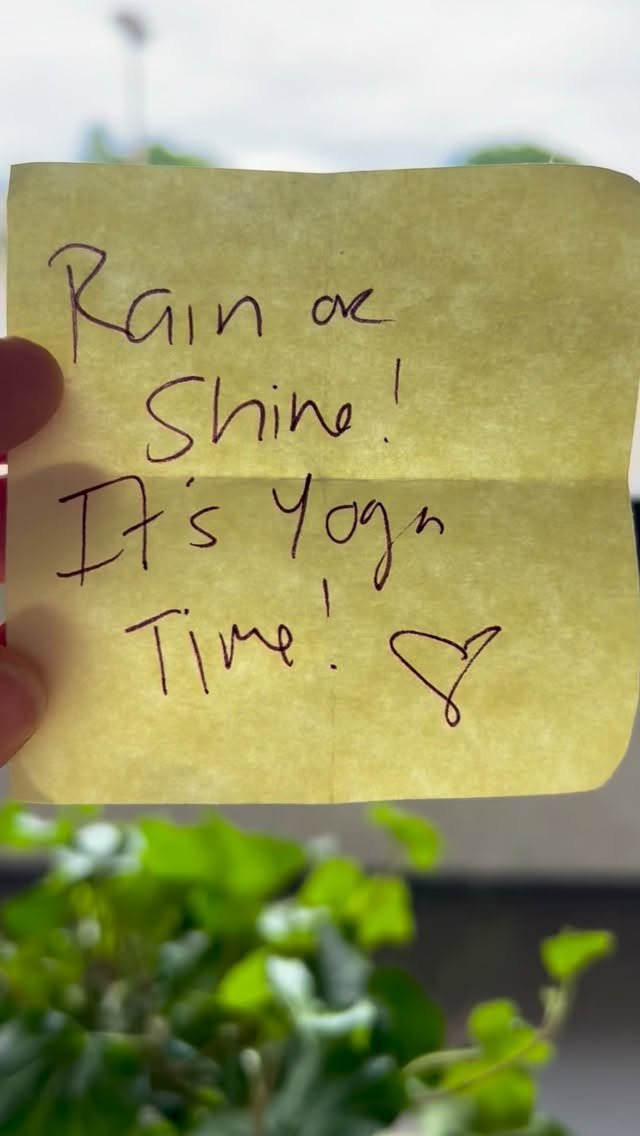 Rain or
Shine!
It's Yoga
Time! ♡